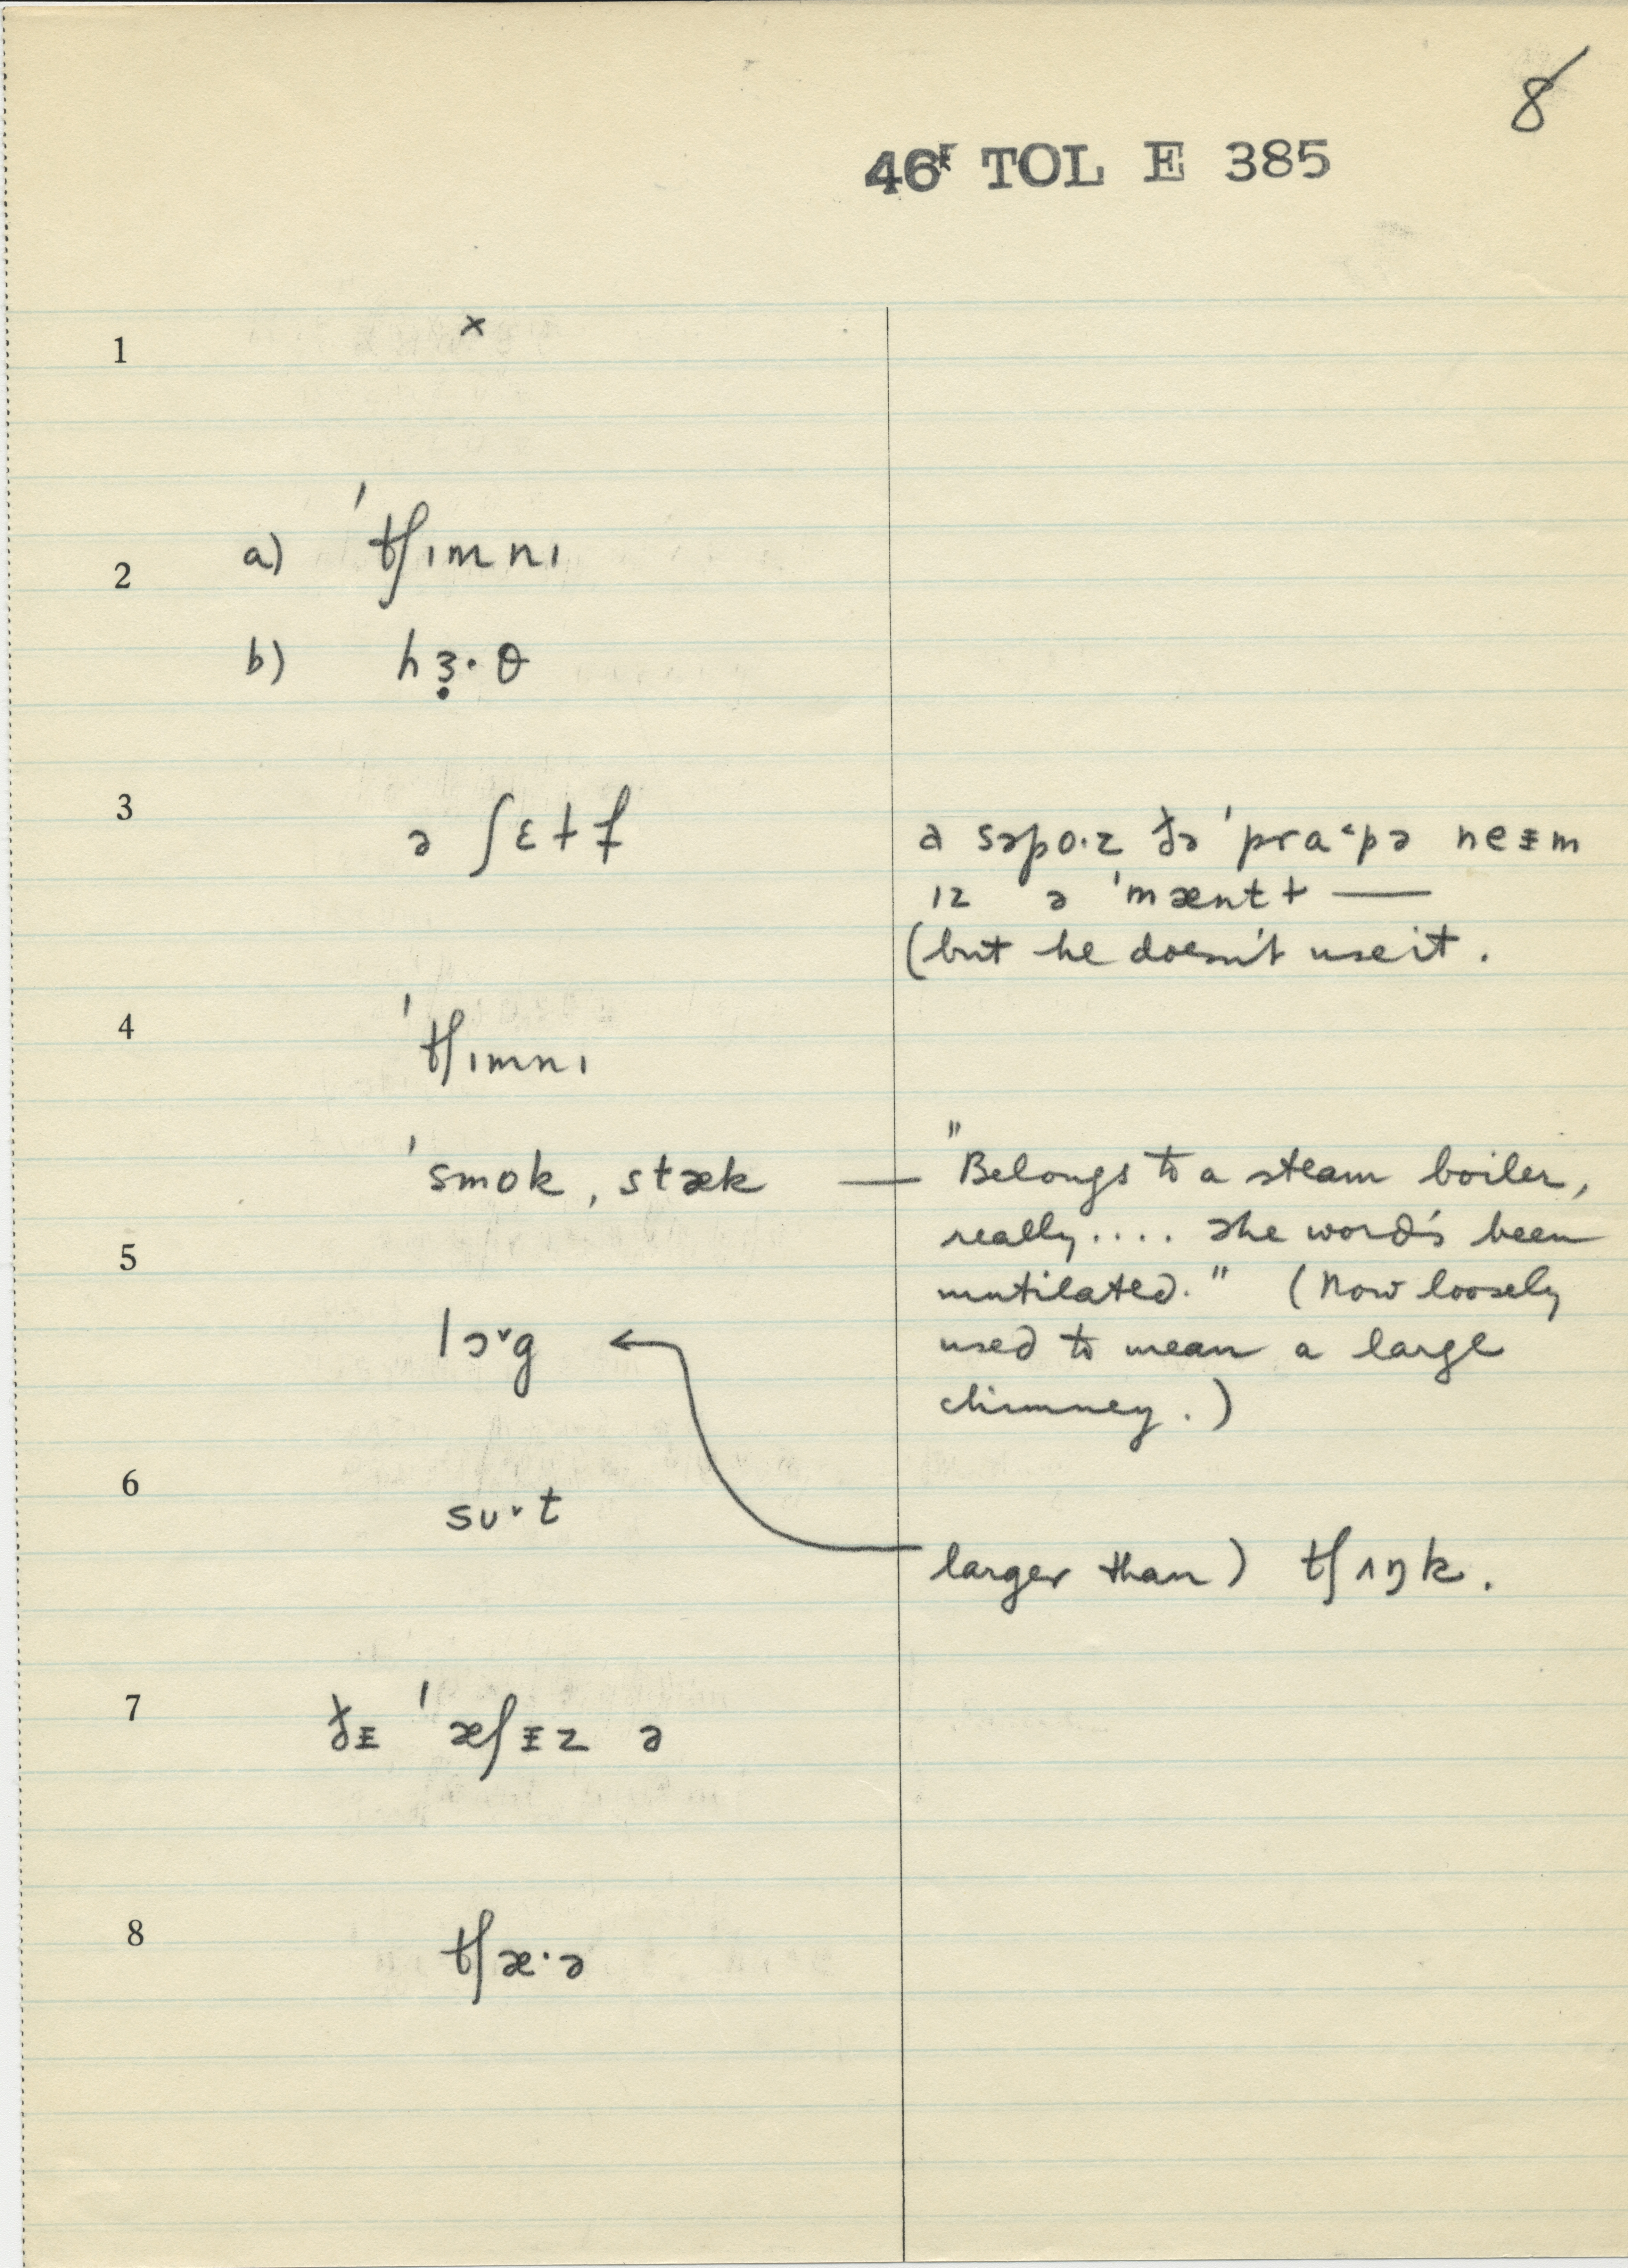 8
46F TOL E 385
1 ×
2 a) ˈtʃɪmnɪ
b) hɜ̣·θ
3 ə ʃɛɫf
a səpo·z ðə ˈpra˂pə neᵻm
ɪz ə ˈmæntɫ —
(but he doesn't use it.
4 ˈtʃɪmnɪ
ˈsmok ˌstæk — "Belongs to a steam boiler,
5 really.... The word's been
mutilated." (Now loosely
lɔ˅g ← used to mean a large
chimney.)
6 sʊ˅t
larger than) tʃʌŋk.
7 ðᵻ ˈæʃᵻz ə
8 tʃæ·ə